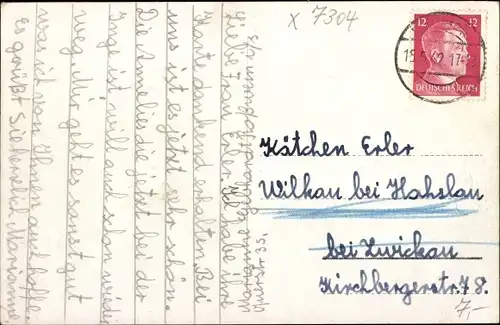 x 7304
12 12
DEUTSCHES REICH
Käthchen Erler
Wilkau bei Haßlau
bei Zwickau
Kirchbergerstr. 78.
7,-
Liebe Frau Erler. Ich habe ihre
Karte dankend erhalten. Bei
uns ist es jetzt sehr schön.
Die Amelie die jetzt bei der
Inge ist will auch schon wieder
weg. Mir geht es sonst gut
was ich von Ihnen auch hoffe.
Es grüßt Sie herzlich Marianne